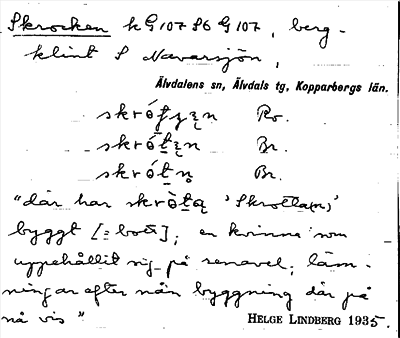 Skrocken k G 107 S6 G 107, berg-
klint S Navarsjön,
Älvdalens sn, Älvdals tg, Kopparbergs län.
Ro.
Br.
Br.
"där har skrò̀tą 'Skrotta(n)'
byggt [= bott]; en kvinna som
uppehållit sig på renavel; läm-
ningar efter nån byggning där på
nå vis"
HELGE LINDBERG 1935.